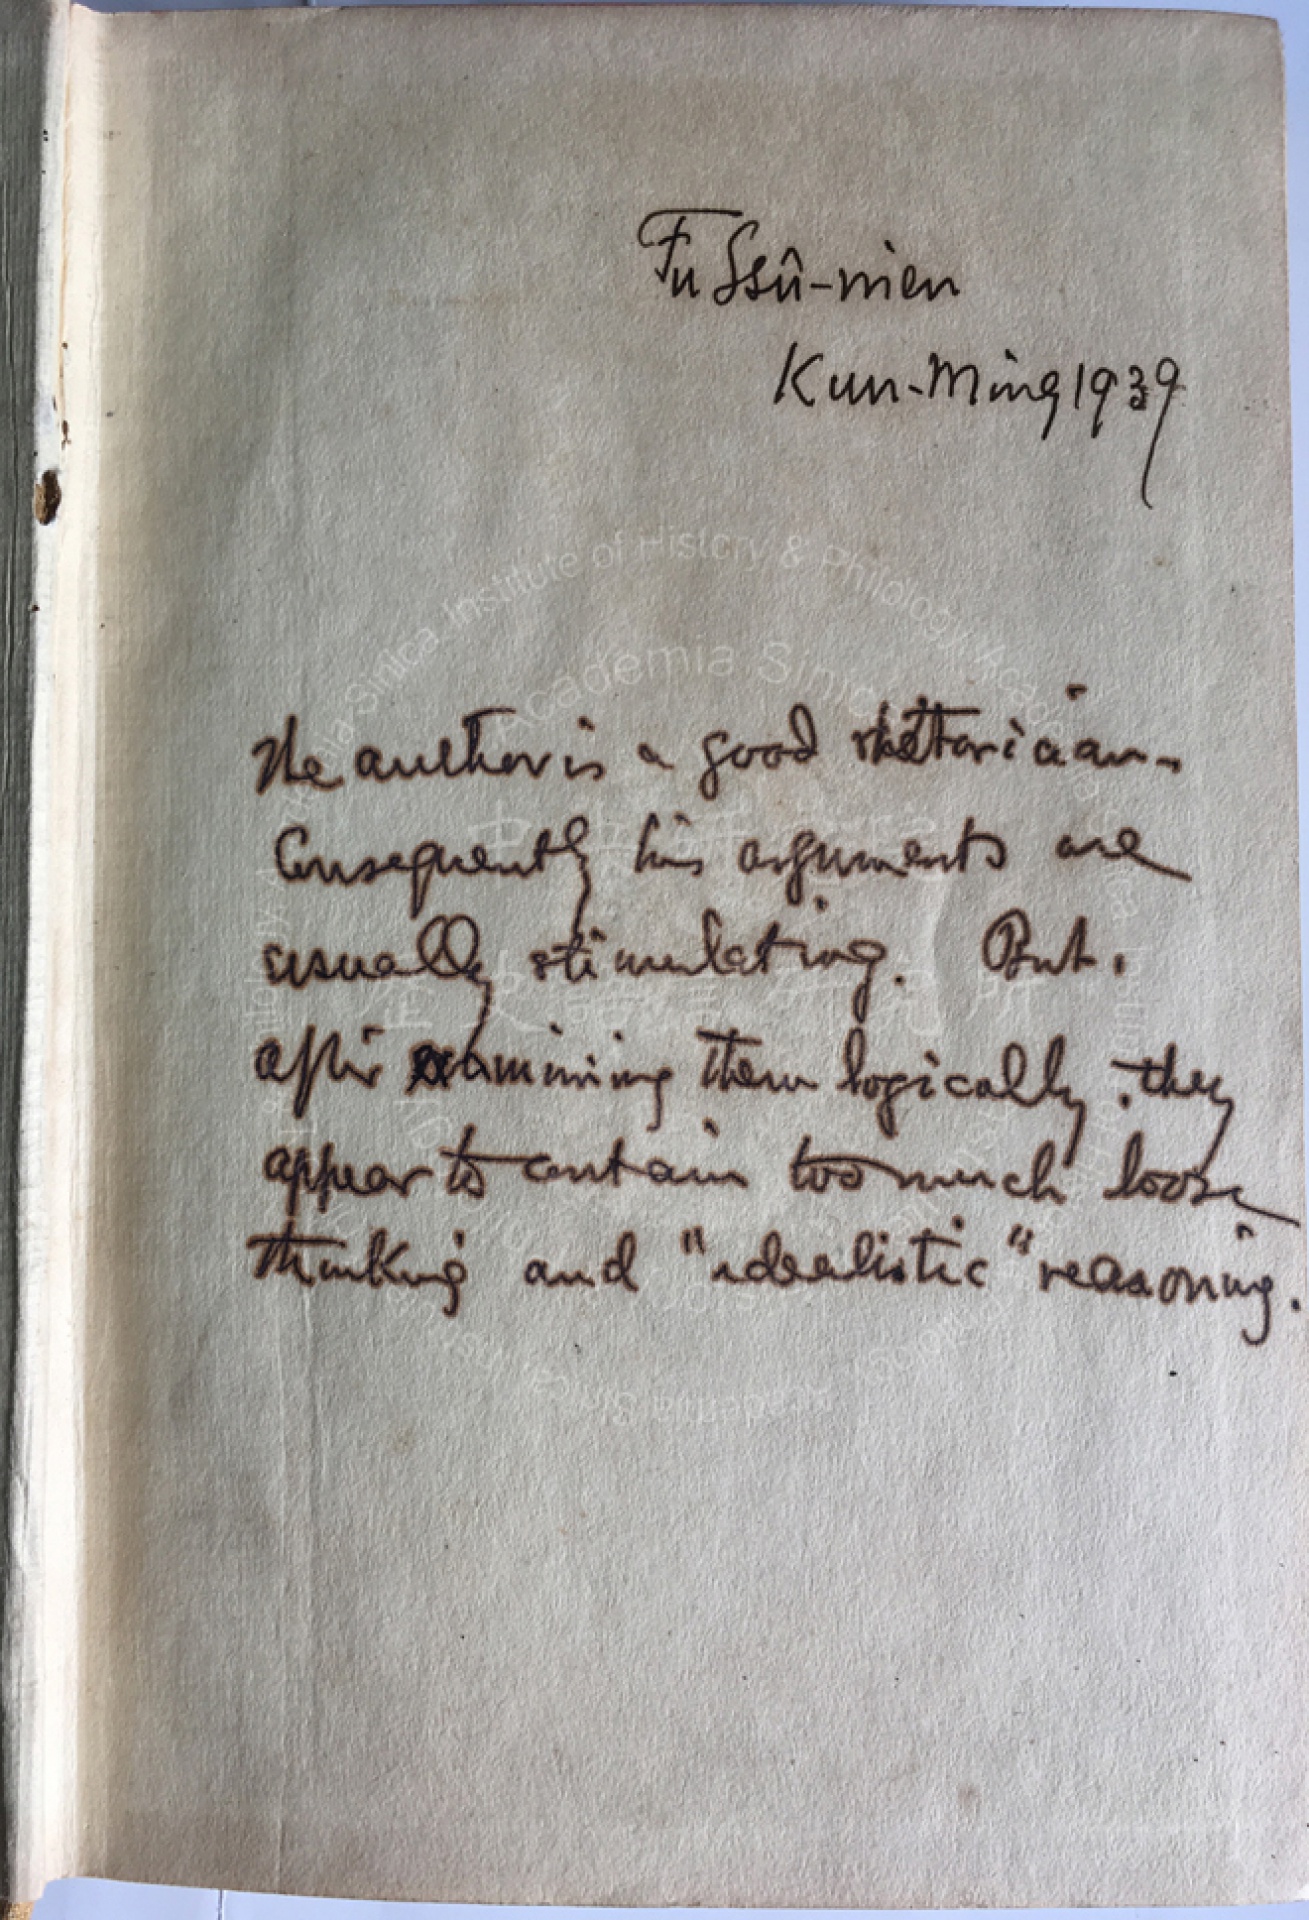 Fu Ssû-nien
Kun-Ming 1939
The author is a good rhetorician.
Consequently his arguments are
usually stimulating. But,
after examining them logically, they
appear to contain too much loose
thinking and "idealistic" reasoning.